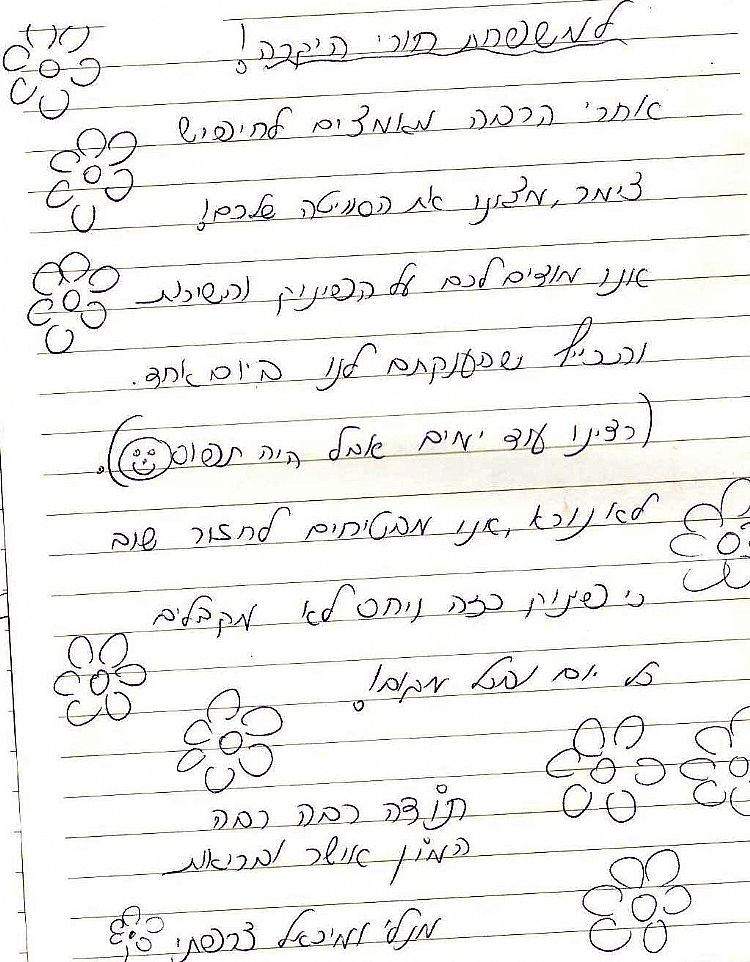 למשפחת חורי היקרה!
אחרי הרבה מאמצים לחיפוש
צימר, מצאנו את הסוויטה שלכם!
אנו מודים לכם על הפינוק והשירות
והכייף שהענקתם לנו ביום אחד.
(רצינו עוד ימים אבל היה תפוס).
לא נורא, אנו מבטיחים לחזור שוב
כי פינוק כזה ויחס לא מקבלים
כל יום ובכל מקום!
תודה רבה רבה
המון אושר ובריאות
ומיכאל צרפתי